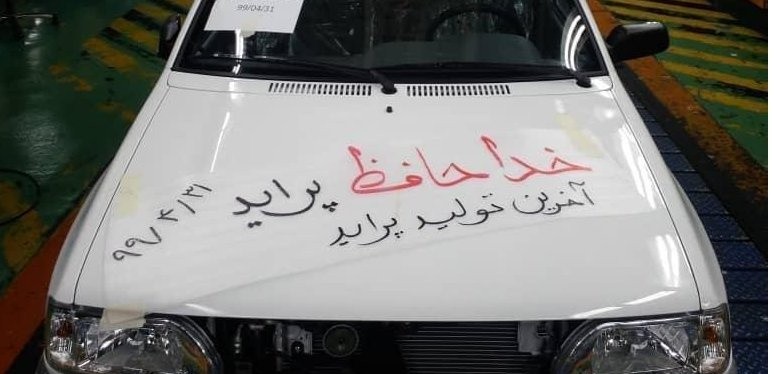 99/04/31
خداحافظ پراید
آخرین تولید پراید
۹۹/۴/۳۱